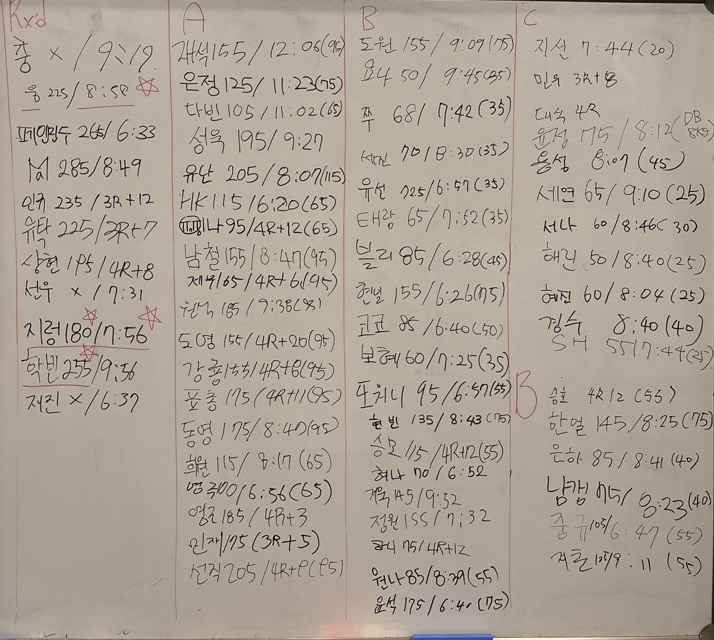 Rxd
훙 x / 9:19
웅 225 / 8:58
265 / 6:33
M 285 / 8:49
인규 235 / 3R+12
유탁 225 / 3R+7
상현 195 / 4R+8
선우 x / 7:31
지렁 180 / 7:56
학빈 255 / 9:56
재진 x / 6:37
A
재석 155 / 12:06 (95)
은정 125 / 11:23 (75)
다빈 105 / 11:02 (65)
성욱 195 / 9:27
유난 205 / 8:07 (115)
HK 115 / 6:20 (65)
95 / 4R+12 (65)
남철 155 / 8:47 (95)
165 / 4R+6 (95)
185 / 9:38 (95)
도영 155 / 4R+20 (95)
강종 155 / 4R+8 (95)
표총 175 (4R+11) (95)
동영 175 / 8:40 (95)
희원 115 / 8:17 (65)
6:56 (65)
185 / 4R+3
인재 175 (3R+5)
선직 205 / 4R+9 (95)
B
도원 155 / 9:09 (75)
요나 50 / 9:45 (35)
쭈 68 / 7:42 (35)
세진 70 / 8:30 (35)
유선 6:57 (35)
태랑 65 / 7:52 (35)
블리 85 / 6:28 (45)
현빌 155 / 6:26 (75)
코코 85 / 6:40 (50)
보혜 60 / 7:25 (35)
포위니 95 / 6:57 (55)
현빈 135 / 8:43 (75)
승모 115 / 4R+12 (55)
허나 70 / 6:52
145 / 9:52
정원 155 / 7:32
하니 75 / 4R+12
원나 85 / 8:39 (55)
윤석 175 / 6:40 (75)
C
지선 7:44 (20)
민우 3R+8
대욱 4R
윤정 75 / 8:12 (DB
용성 8:07 (45)
세연 65 / 9:10 (25)
서나 60 / 8:46 (30)
해린 50 / 8:40 (25)
혜진 60 / 8:04 (25)
경수 8:40 (40)
SH 55 / 7:44 (25)
B
승호 4R12 (55)
한얼 145 / 8:25 (75)
은하 85 / 8:41 (40)
남갱 75 / 8:23 (40)
중규 105 / 6:47 (55)
105 / 9:11 (55)